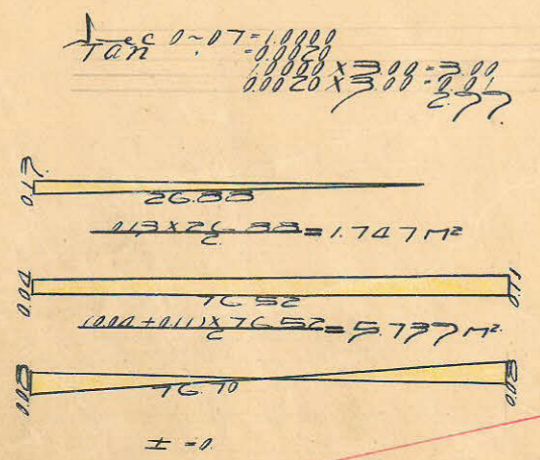 Sec 0~07 = 1.0000
Tan " = 0.0020
1.0000 × 3.00 = 3.00
0.0020 × 3.00 = 0.01
2.99
0.13
26.88
0.13 × 26.88 / 2 = 1.747 m²
0.04
76.52
0.11
(0.04 + 0.11) × 76.52 / 2 = 5.739 m²
0.08
76.70
0.08
± = 0.